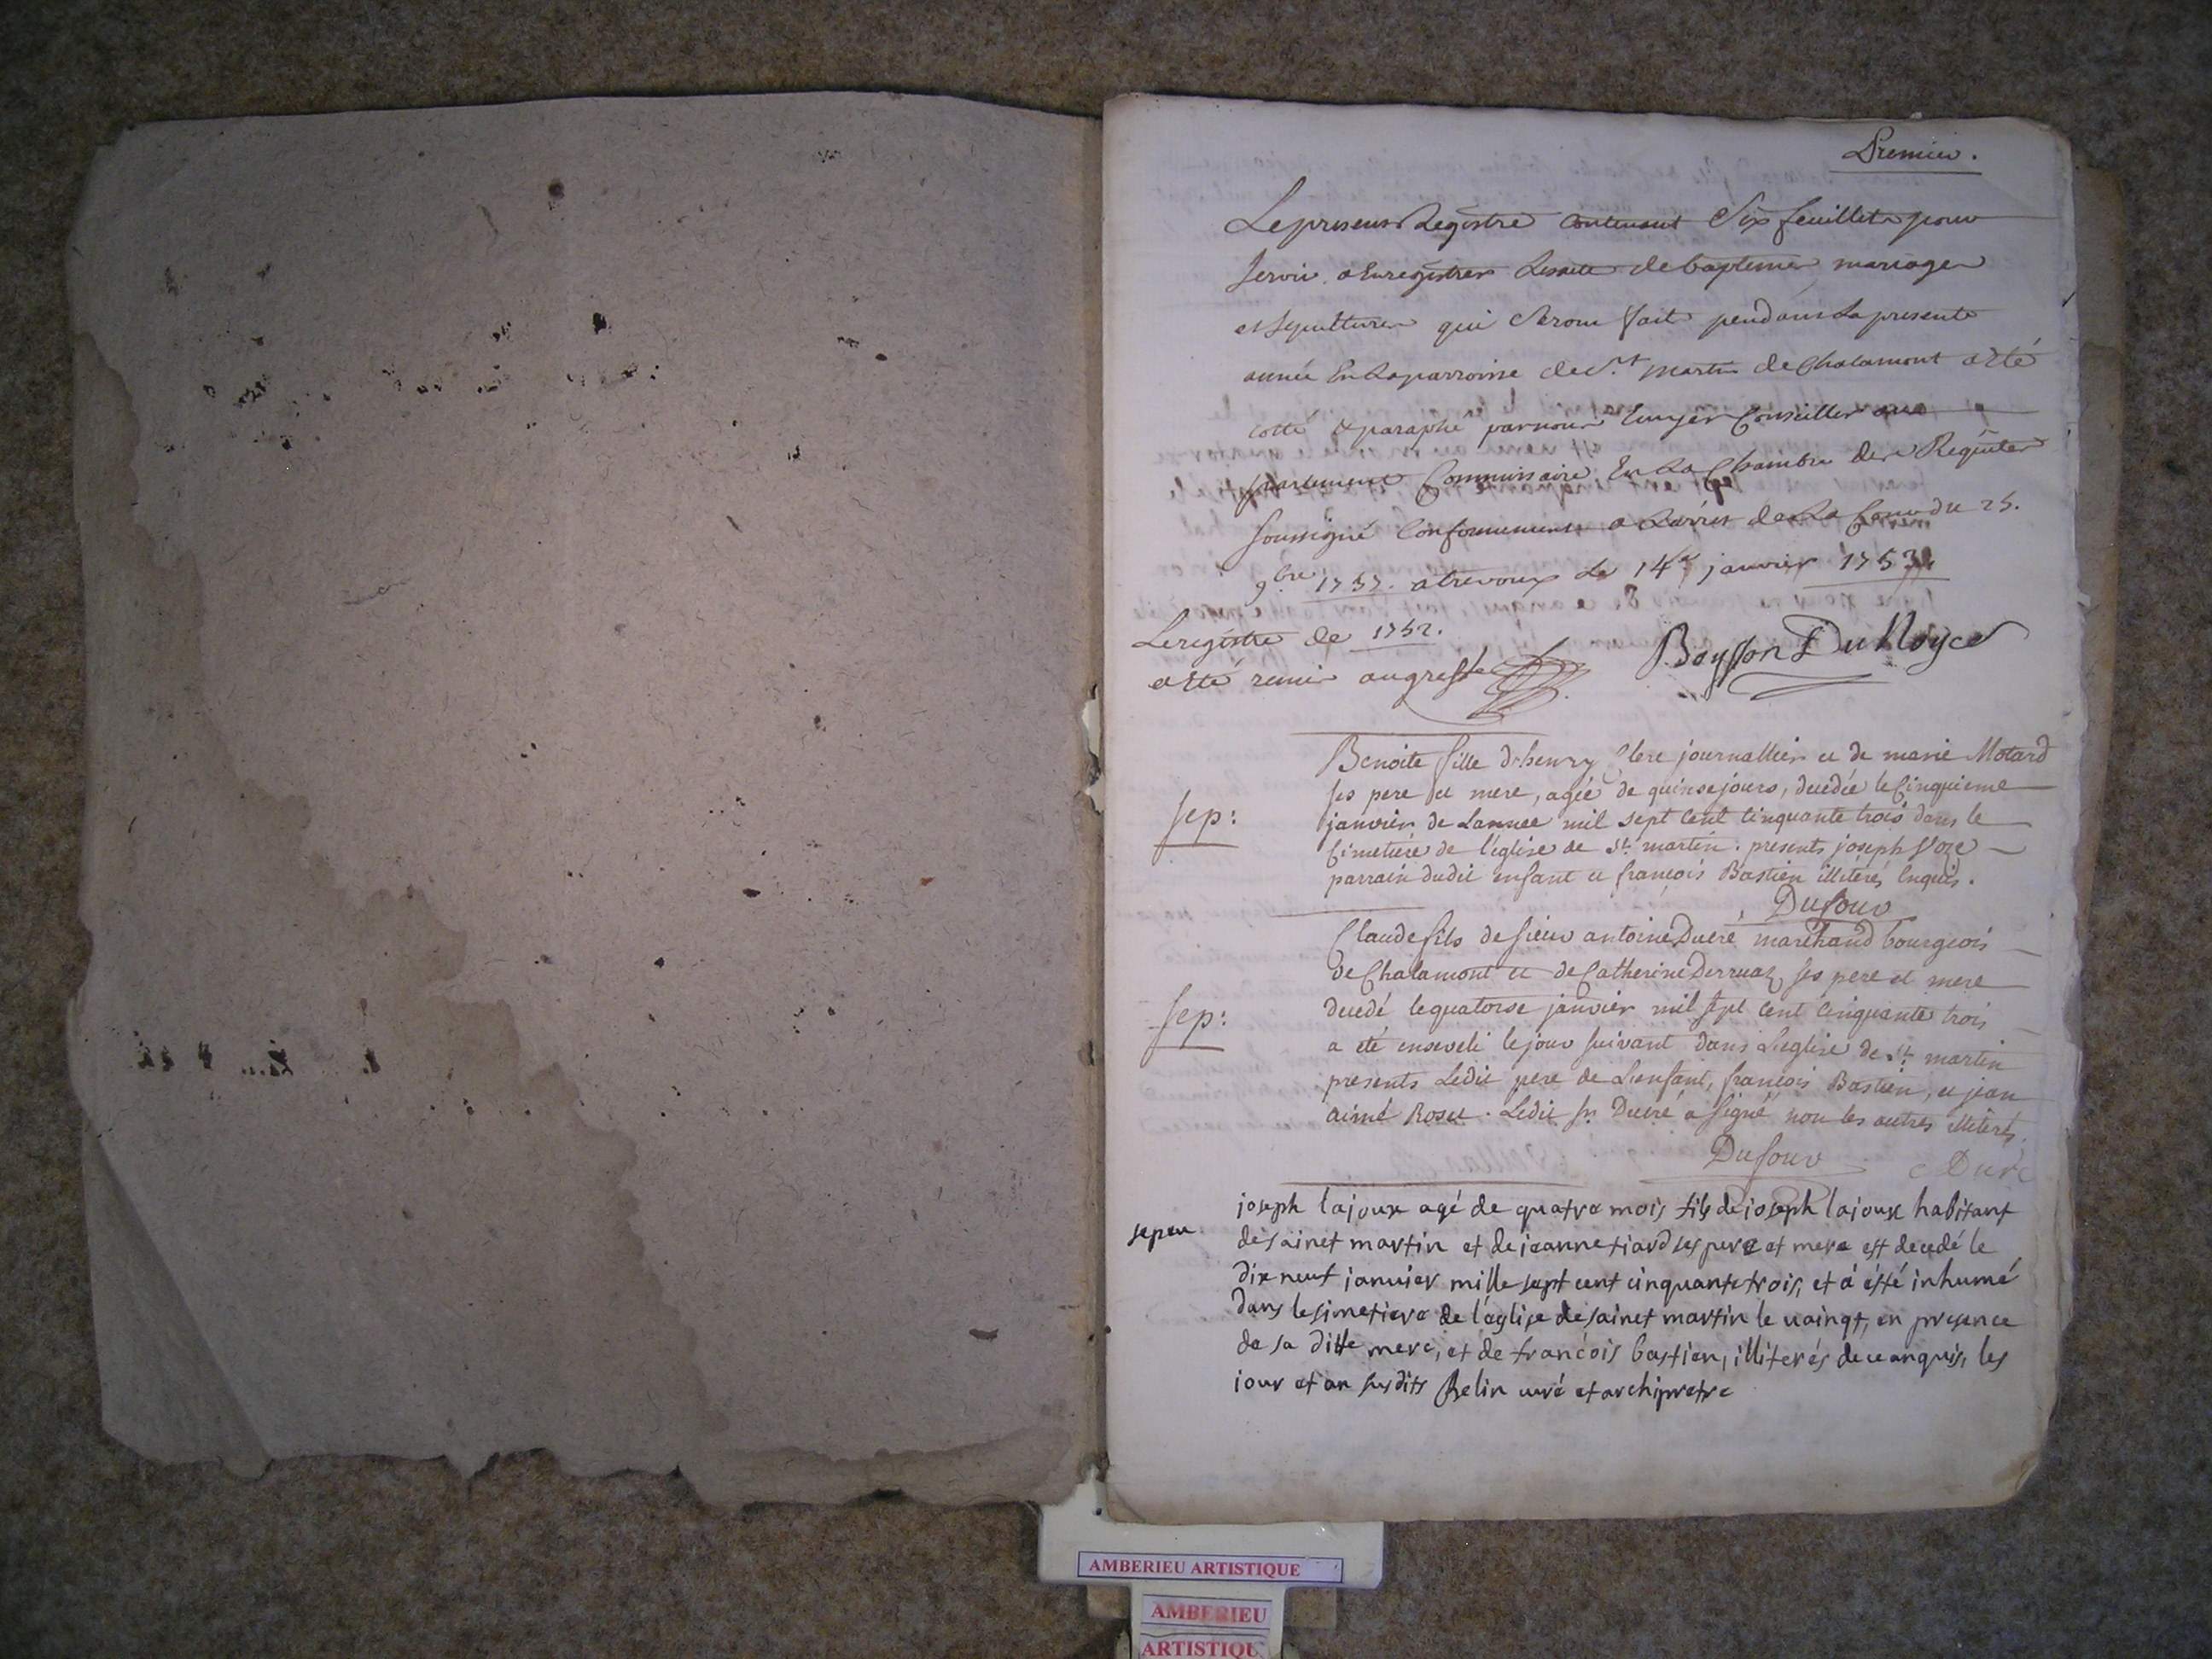 Premier.
Le present Registre contenant Six feuillets pour
servir a Enregistrer Les acte de baptemes mariages
et Sepultures qui Seront fait pendant La presente
année En La parroisse de St. martin de Chalamont a Eté
cotté & paraphé par nous Ecuyer Conseiller au
parlement Commissaire En La Chambre des Requetes
soussigné Conformement a L'arrest de La Cour du 25.
9bre 1737. a trevoux le 14e janvier 1753.
Le registre de 1752.
a Eté remis au greffe
Boysson Du Noyer
Benoite fille d'henry Clere journallier et de marie Motard
sep:
ses pere et mere, agée de quinse jours, decedée le Cinquieme
janvier de Lannee mil sept Cent Cinquante trois dans le
Cimetiere de l'église de St. martin. presents joseph
parrain dudit enfant et francois Bastien illiterés Enquis.
Dufour
Claude fils de sieur antoine Ducré marchand bourgeois
de Chalamont et de Catherine Derruaz ses pere et mere
sep:
decedé le quatorse janvier mil sept Cent Cinquante trois
a eté enseveli le jour suivant dans L'eglise de St. martin
presents Ledit pere de L'enfant, francois Bastien, et jean
aimé Roset. Ledit Sr. Ducré a signé non les autres illiterés.
Dufour Ducré
joseph lajoux agé de quatre mois fils de joseph lajoux habitant
sepu
de sainct martin et de jeanne tiard ses pere et mere est decedé le
dix neuf janvier mille sept cent cinquante trois, et á ésté inhumé
dans le simetiere de l'églize de sainct martin le vaingt, en presence
de sa ditte mere, et de francóis bastien, illiterés de ce anquis, les
jour et an susdits Belin curé et archipretre
AMBERIEU ARTISTIQUE
AMBERIEU
ARTISTIQU